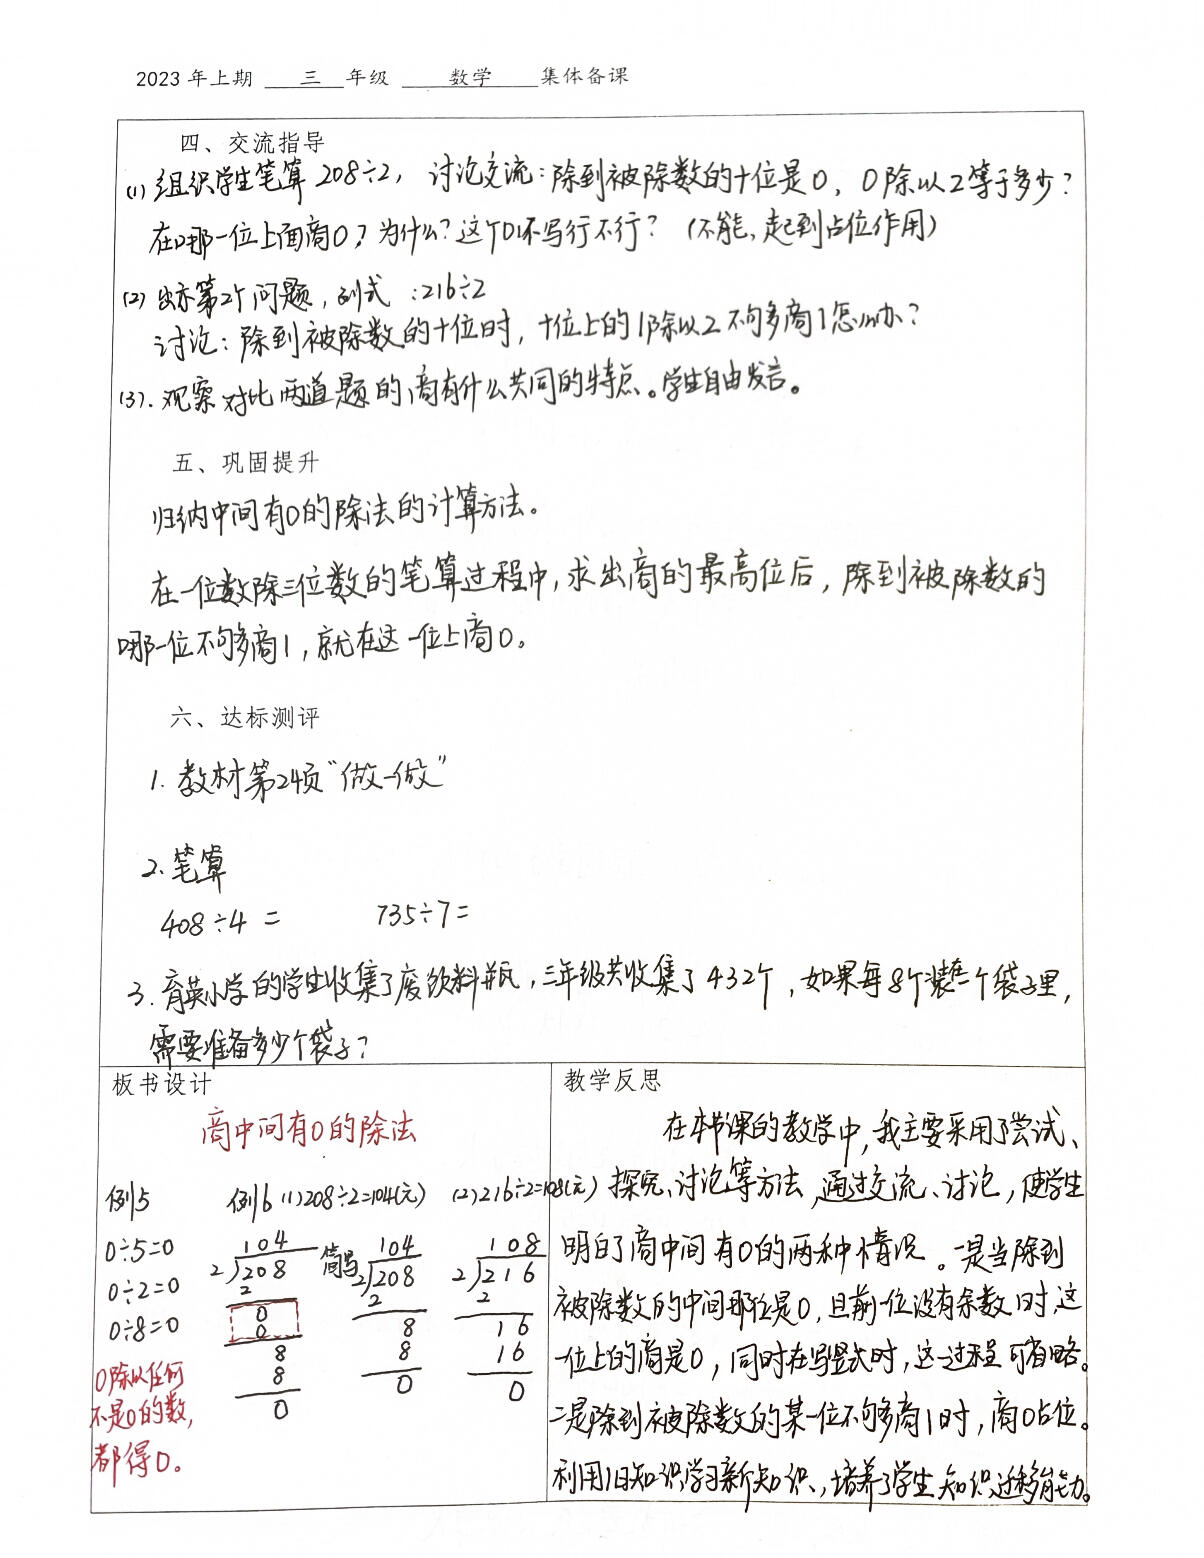 2023 年上期 三 年级 数学 集体备课
四、交流指导
(1) 组织学生笔算 208÷2, 讨论交流:除到被除数的十位是0, 0除以2等于多少?
在哪一位上面商0?为什么?这个0不写行不行? (不能,起到占位作用)
(2) 出示第2个问题,列式 :216÷2
讨论:除到被除数的十位时,十位上的1除以2不够商1怎么办?
(3). 观察对比两道题的商有什么共同的特点。学生自由发言。
五、巩固提升
归纳中间有0的除法的计算方法。
在一位数除三位数的笔算过程中,求出商的最高位后,除到被除数的
哪一位不够商1,就在这一位上商0。
六、达标测评
1. 教材第24页“做一做”
2. 笔算
408÷4 = 735÷7=
3. 育英小学的学生收集了废饮料瓶,三年级共收集了432个,如果每8个装一个袋子里,
需要准备多少个袋子?
板书设计
商中间有0的除法
例5 例6 (1)208÷2=104(元) (2)216÷2=108(元)
0÷5=0
0÷2=0
0÷8=0
0除以任何
不是0的数,
都得0。
104
2)208
2
0
0
8
8
0
简写
104
2)208
2
8
8
0
108
2)216
2
16
16
0
教学反思
在本节课的教学中,我主要采用了尝试、
探究、讨论等方法,通过交流、讨论,使学生
明白了商中间有0的两种情况。一是当除到
被除数的中间那位是0,且前一位没有余数时,这
一位上的商是0,同时在写竖式时,这一过程可省略。
二是除到被除数的某一位不够商1时,商0占位。
利用旧知识学习新知识,培养了学生知识迁移能力。